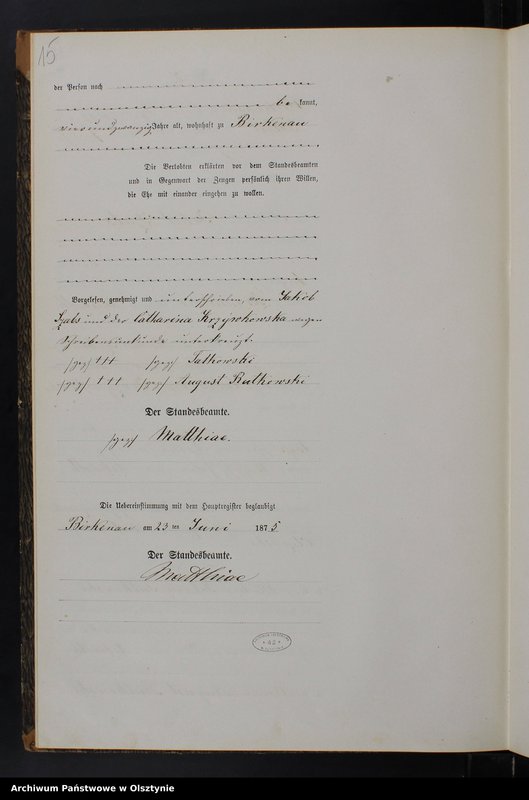 15
der Person nach
be kannt,
vierundzwanzig Jahre alt, wohnhaft zu Birkenau
Die Verlobten erklärten vor dem Standesbeamten
und in Gegenwart der Zeugen persönlich ihren Willen,
die Ehe mit einander eingehen zu wollen.
Vorgelesen, genehmigt und unterschrieben, vom Jakob
und der Catharina Krzyschowska wegen
Schreibensunkunde unterkreuzt.
/gez/ +++ /gez/ Talkowski
/gez/ +++ /gez/ August Rutkowski
Der Standesbeamte.
/gez/ Matthiae.
Die Uebereinstimmung mit dem Hauptregister beglaubigt
Birkenau am 23 ten Juni 1875
Der Standesbeamte.
Matthiae
Archiwum Państwowe w Olsztynie